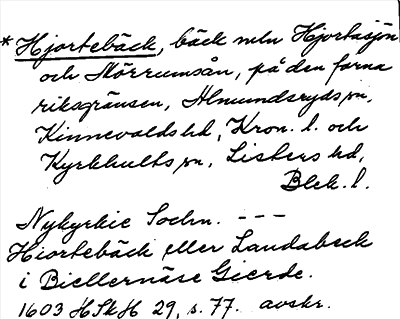 * Hjortebäck, bäck meln Hjortasjön
och Mörrumsån, på den forna
riksgränsen, Almundsryds sn,
Kinnevalds hd, Kron. l. och
Kyrkhults sn, Listers hd,
Blek. l.
Nykyrkie Sochn. ---
Hiortebäck eller Landabeck
i Biellernäse Gierde.
1603 HSkH 29, s. 77. avskr.